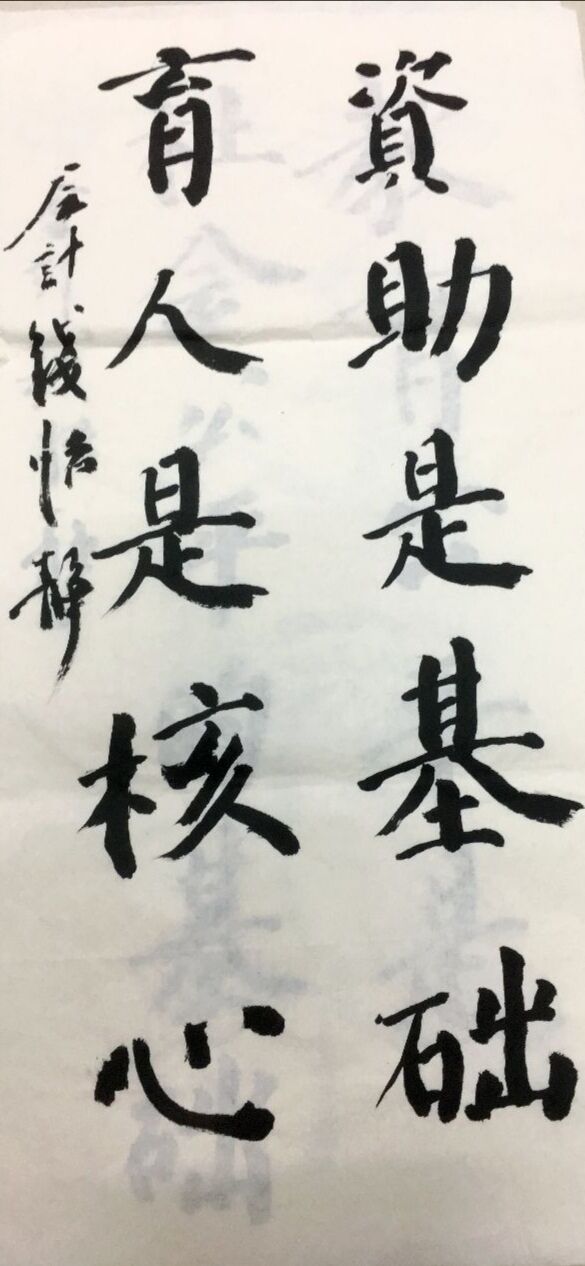 資助是基础
育人是核心
会計錢怡静